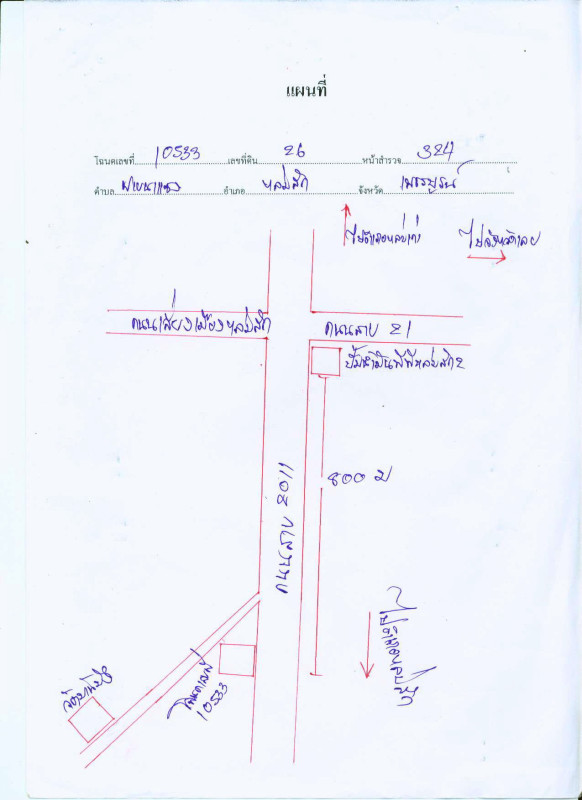 แผนที่
โฉนดเลขที่ 10533 เลขที่ดิน 26 หน้าสำรวจ 324
ตำบล อำเภอ หล่มสัก จังหวัด เพชรบูรณ์
ไปอำเภอหล่มเก่า ไปจังหวัดเลย
ถนนเลี่ยงเมืองหล่มสัก ถนนสาย 21
ปั้มน้ำมันพีทีหล่มสัก2
800 ม
ถนนสาย 2011
ไปอำเภอหล่มสัก
โฉนดเลขที่
10533